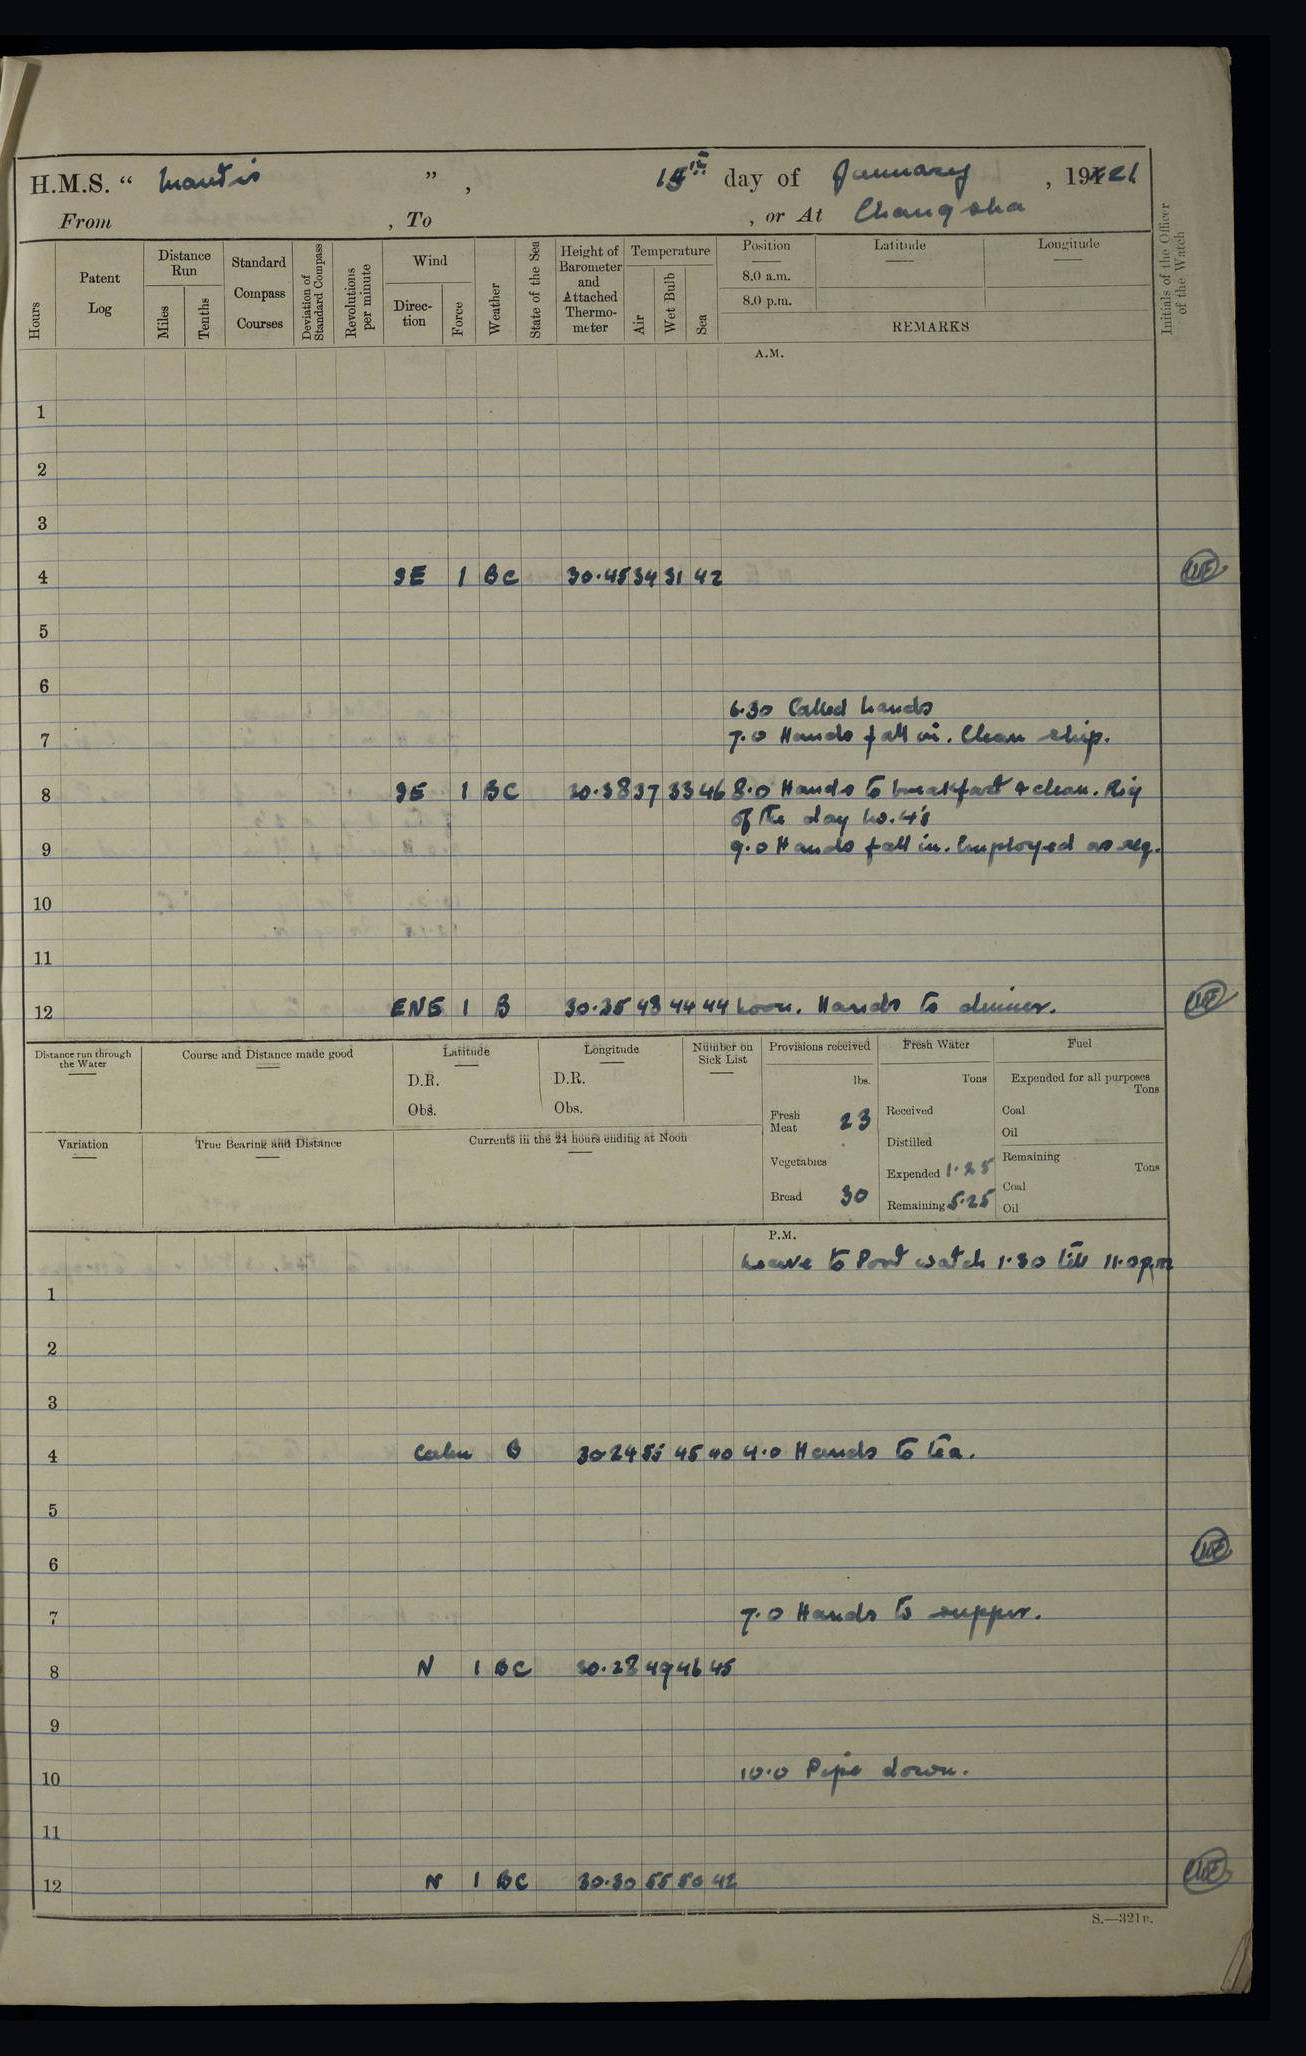 H.M.S. “ Mantis ” , 15th day of January , 1921
From , To , or At Changsha
Hours
Patent Log
Distance Run
Miles
Tenths
Standard Compass Courses
Deviation of Standard Compass
Revolutions per minute
Wind
Direction
Force
Weather
State of the Sea
Height of Barometer and Attached Thermometer
Temperature
Air
Wet Bulb
Sea
Position
8.0 a.m.
8.0 p.m.
Latitude
Longitude
REMARKS
Initials of the Officer of the Watch
A.M.
1
2
3
4 SE 1 BC 30.45 34 31 42
5
6
6.30 Called hands
7 7.0 Hands fall in. Clean ship.
8 SE 1 BC 30.38 37 33 46 8.0 Hands to breakfast & clean. Rig
of the day No. 4's
9 9.0 Hands fall in. Employed as req.
10
11
12 ENE 1 B 30.35 48 44 44 Noon. Hands to dinner.
Distance run through the Water
Course and Distance made good
Latitude
D.R.
Obs.
Longitude
D.R.
Obs.
Number on Sick List
Provisions received
lbs.
Fresh Meat 23
Vegetables
Bread 30
Fresh Water
Tons
Received
Distilled
Expended 1.25
Remaining 5.25
Fuel
Expended for all purposes
Tons
Coal
Oil
Remaining
Tons
Coal
Oil
Variation
True Bearing and Distance
Currents in the 24 hours ending at Noon
P.M.
Leave to Port watch 1.30 till 11.0 p.m
1
2
3
4 Calm B 30.24 55 45 40 4.0 Hands to tea.
5
6
7 7.0 Hands to supper.
8 N 1 BC 30.28 49 46 45
9
10 10.0 Pipe down.
11
12 N 1 BC 30.30 55 50 42
S.—321D.